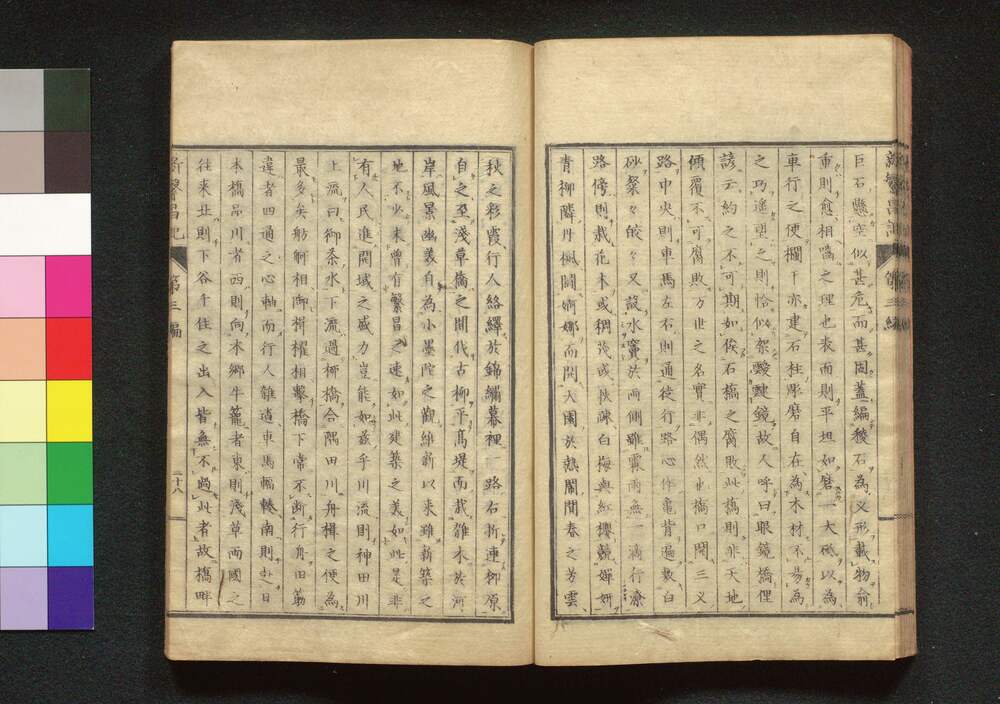 巨石懸空似甚危而甚固蓋編稜石為乂形載物俞
重則愈相噛之理也表面則平坦如磨一大砥以為
車行之便欄干亦建石柱彫磨自在為木材不易為
之巧遙望之則恰似架靉靆鏡故人呼曰眼鏡橋俚
諺云約之不可期如俟石橋之腐敗此橋則非天地
傾覆不可腐敗万世之名實非偶然也橋口開三叉
路中央則車馬左右則通徒行路心作龜背遍敷白
砂粲々皚々又設水竇於兩側雖霖雨無一滴行潦
路傍則栽花木或稠茂或扶疎白梅與紅櫻競嬋妍
青柳隣丹楓鬪婀娜而開大園於熱鬧間春之芳雲
秋之彩霞行人絡繹於錦繡幕裡一路右折連柳原
自之至淺草橋之間代古柳平高堤而栽雜木於河
岸風景幽美自為小墨陀之觀維新以來雖新築之
地不少未曾有繁昌之速如此建築之美如此是非
有人民進開域之盛力豈能如茲乎川流則神田川
上流曰御茶水下流過柳橋合隅田川舟楫之便為
最多矣舫舸相啣楫櫂相擊橋下常不断行舟田筋
違者四通之心軸而行人雜遝車馬輻輳南則赴日
本橋品川者西則向本鄉牛籠者東則淺草両國之
往來北則下谷千住之出入皆無不過此者故橋畔
新繁昌記
第三編
二十八